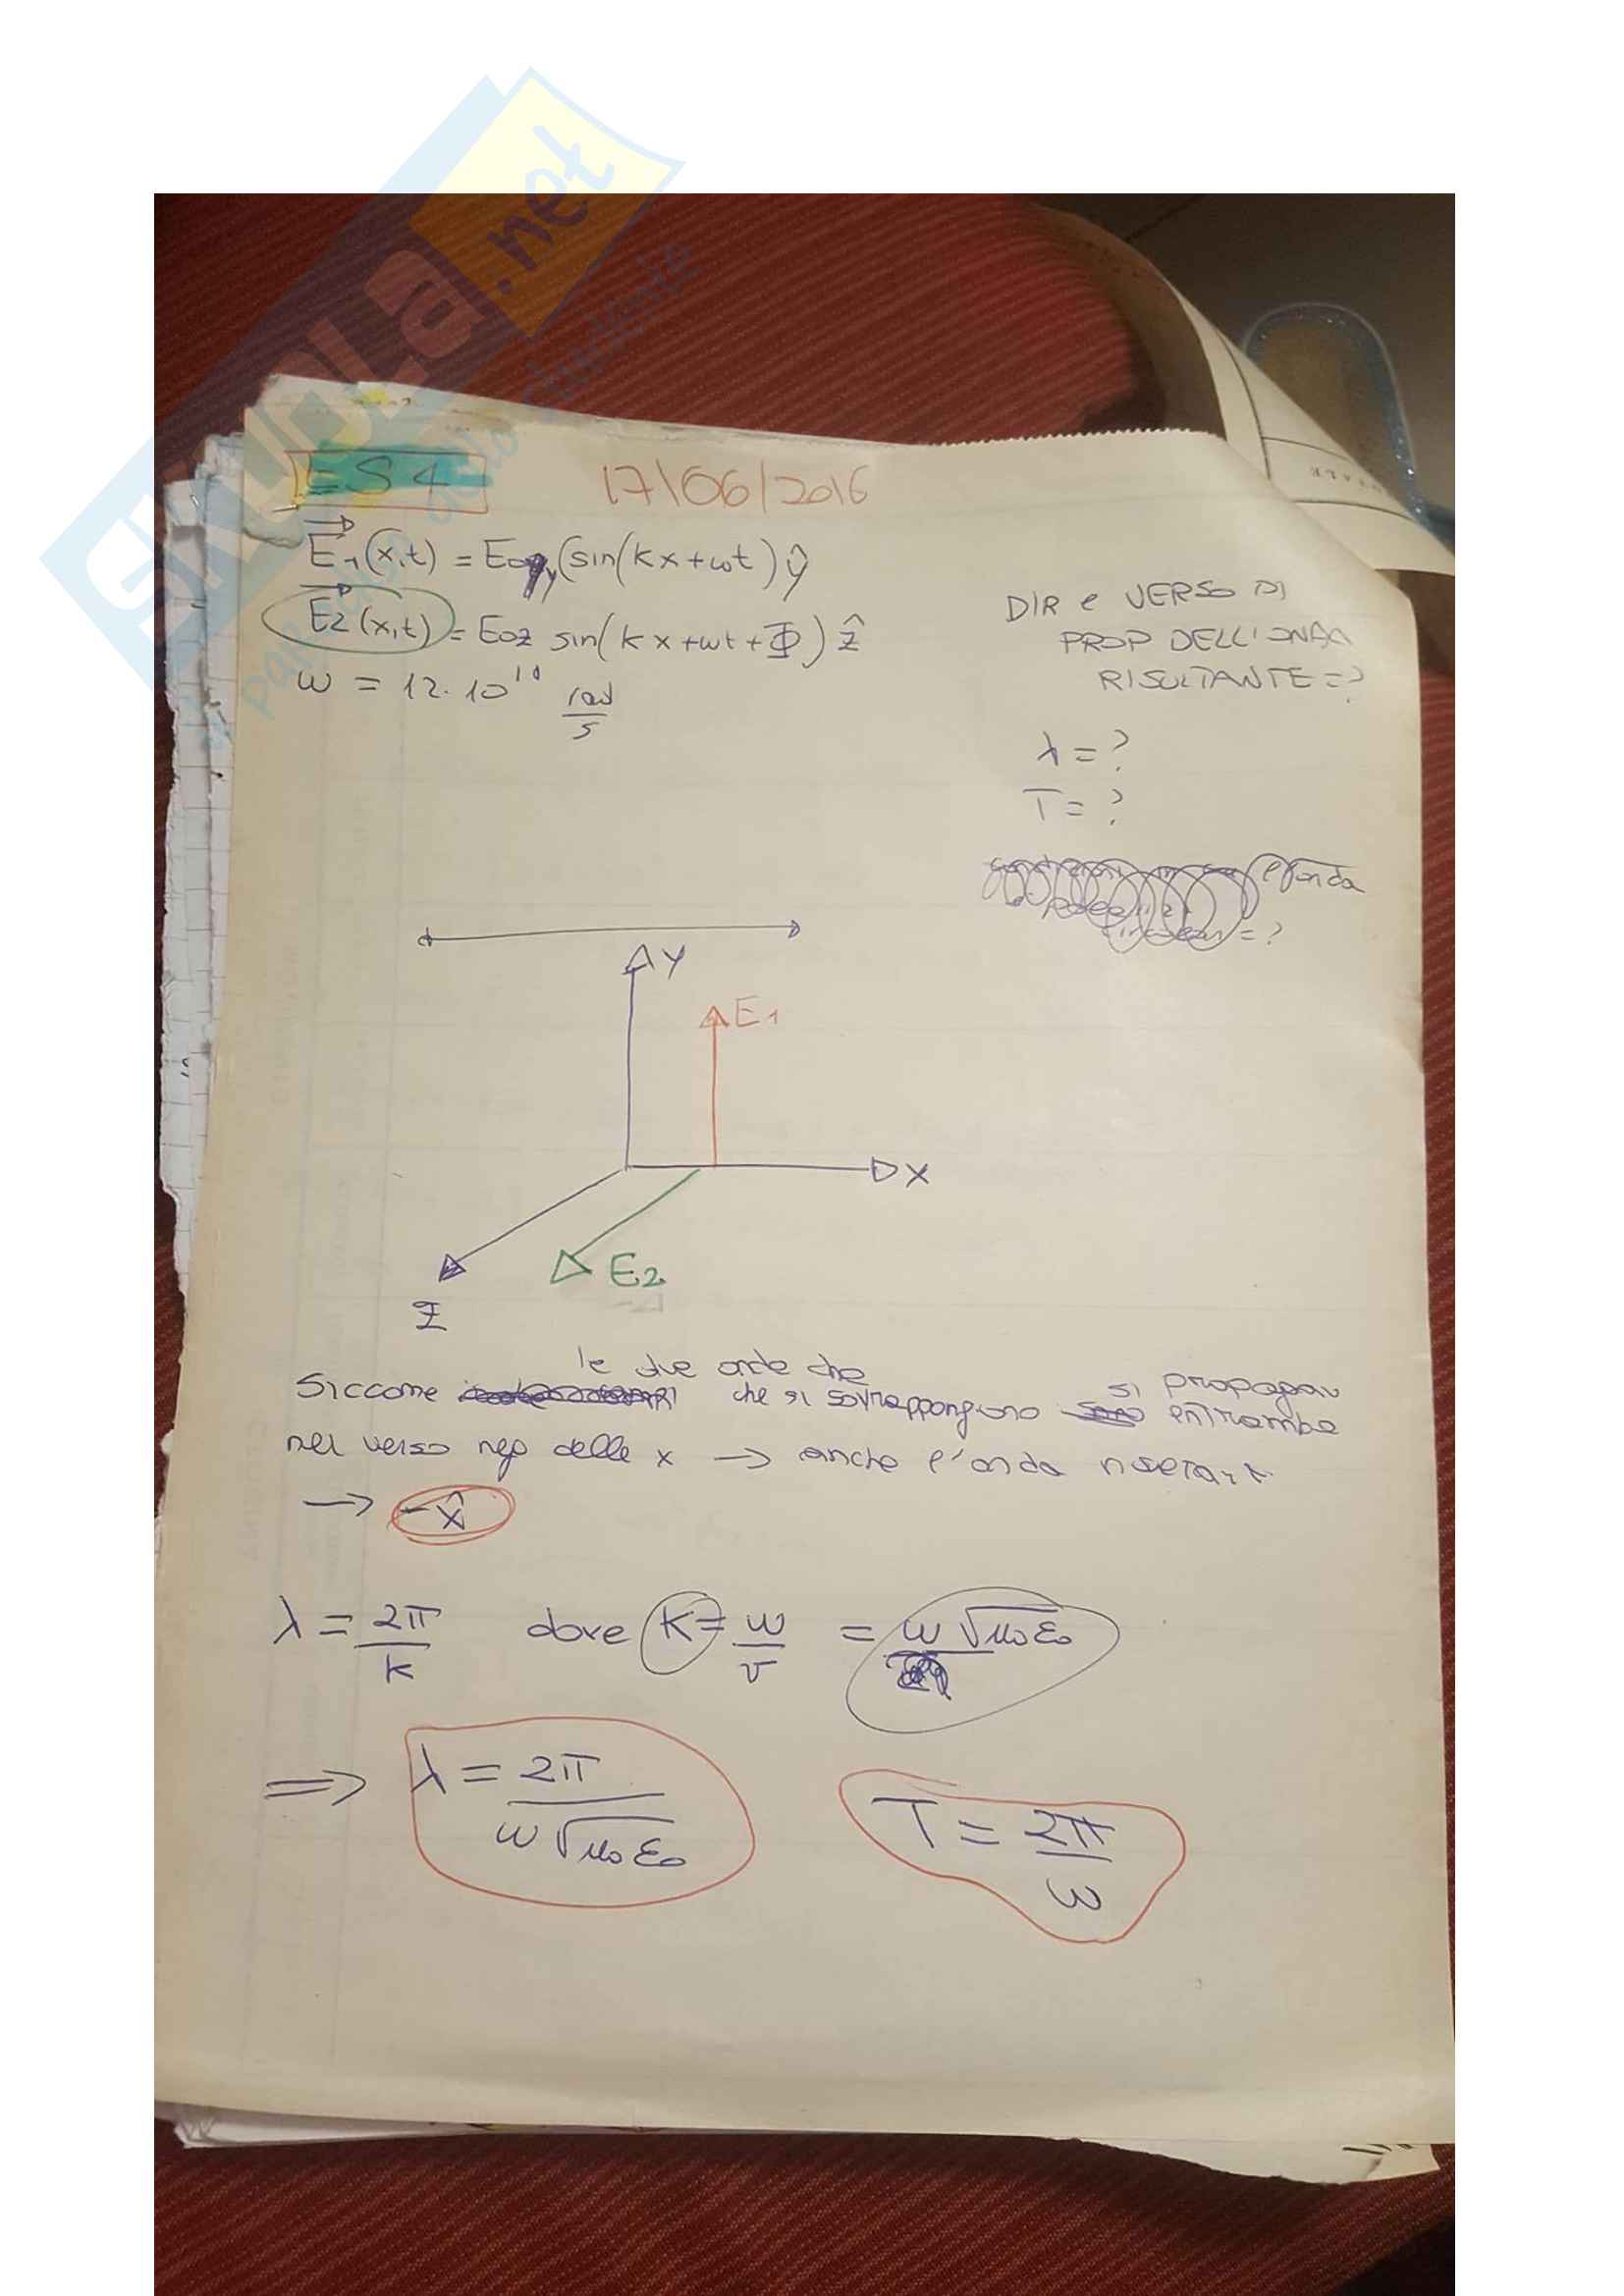 SKUOLA.net
ES 4
17/06/2016
E1(x,t) = E0y (sin(kx+ωt) ŷ
E2(x,t) = E0z sin(kx+ωt+Φ) ẑ
ω = 12·10^10 rad/s
DIR e VERSO DI
PROP DELL'ONDA
RISULTANTE=?
λ = ?
T = ?
l'onda
= ?
Y
E1
X
E2
Z
le due onde che
Siccome che si sovrappongono si propagan entrambe
nel verso neg delle x → anche l'onda risultant
→ -x̂
λ = 2π/k dove k = ω/v = ω√μ0ε0
⇒ λ = 2π/(ω√μ0ε0)
T = 2π/ω